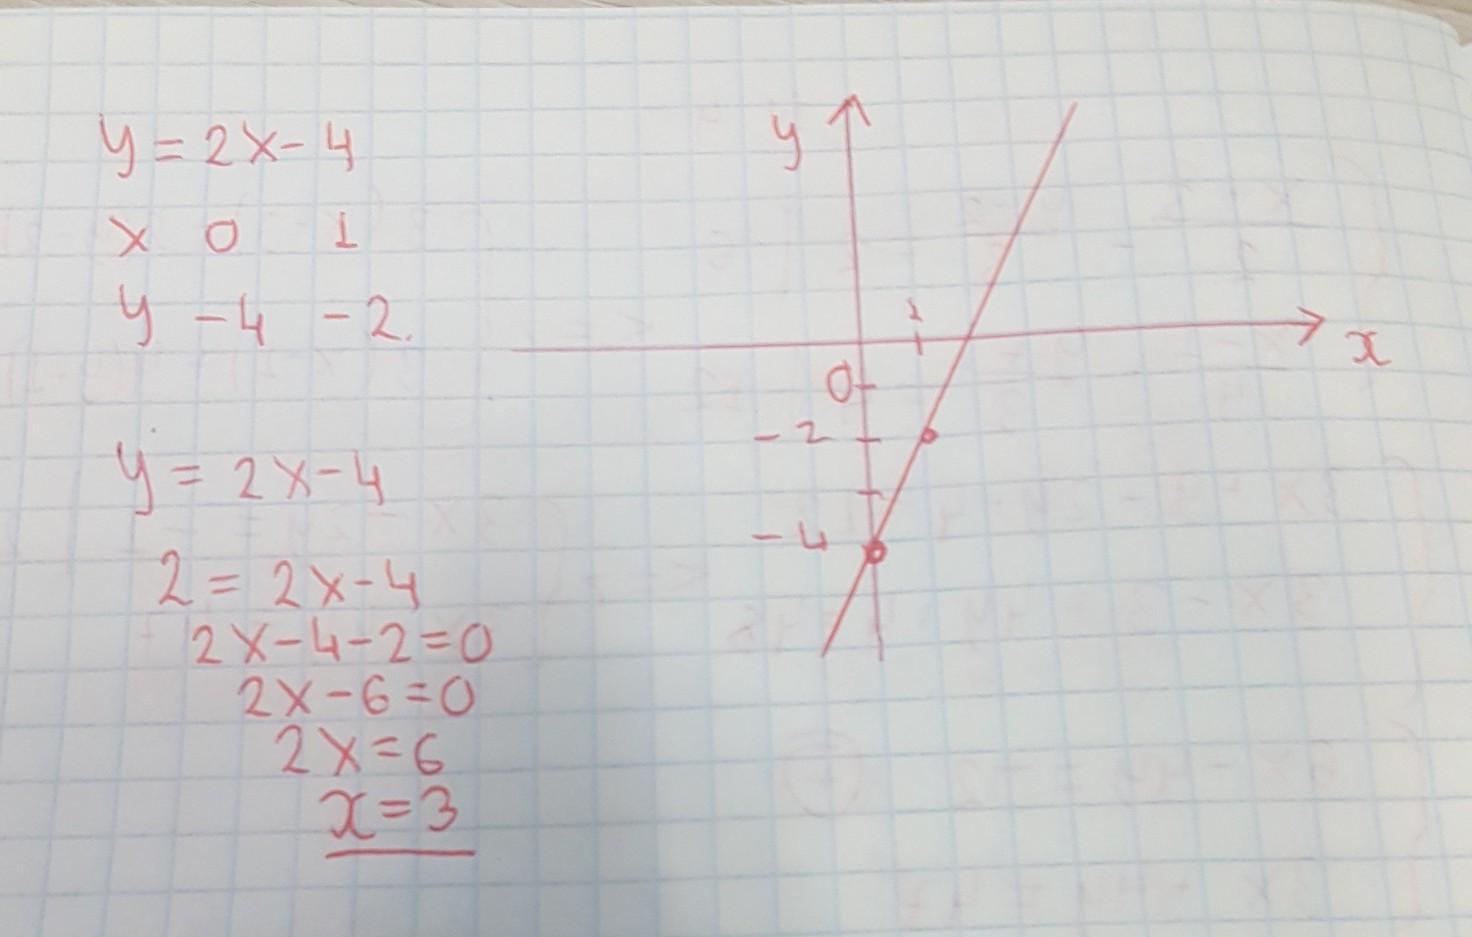 y = 2x - 4
x 0 1
y -4 -2.
y = 2x - 4
2 = 2x - 4
2x - 4 - 2 = 0
2x - 6 = 0
2x = 6
x = 3
y
1
x
0
-2
-4